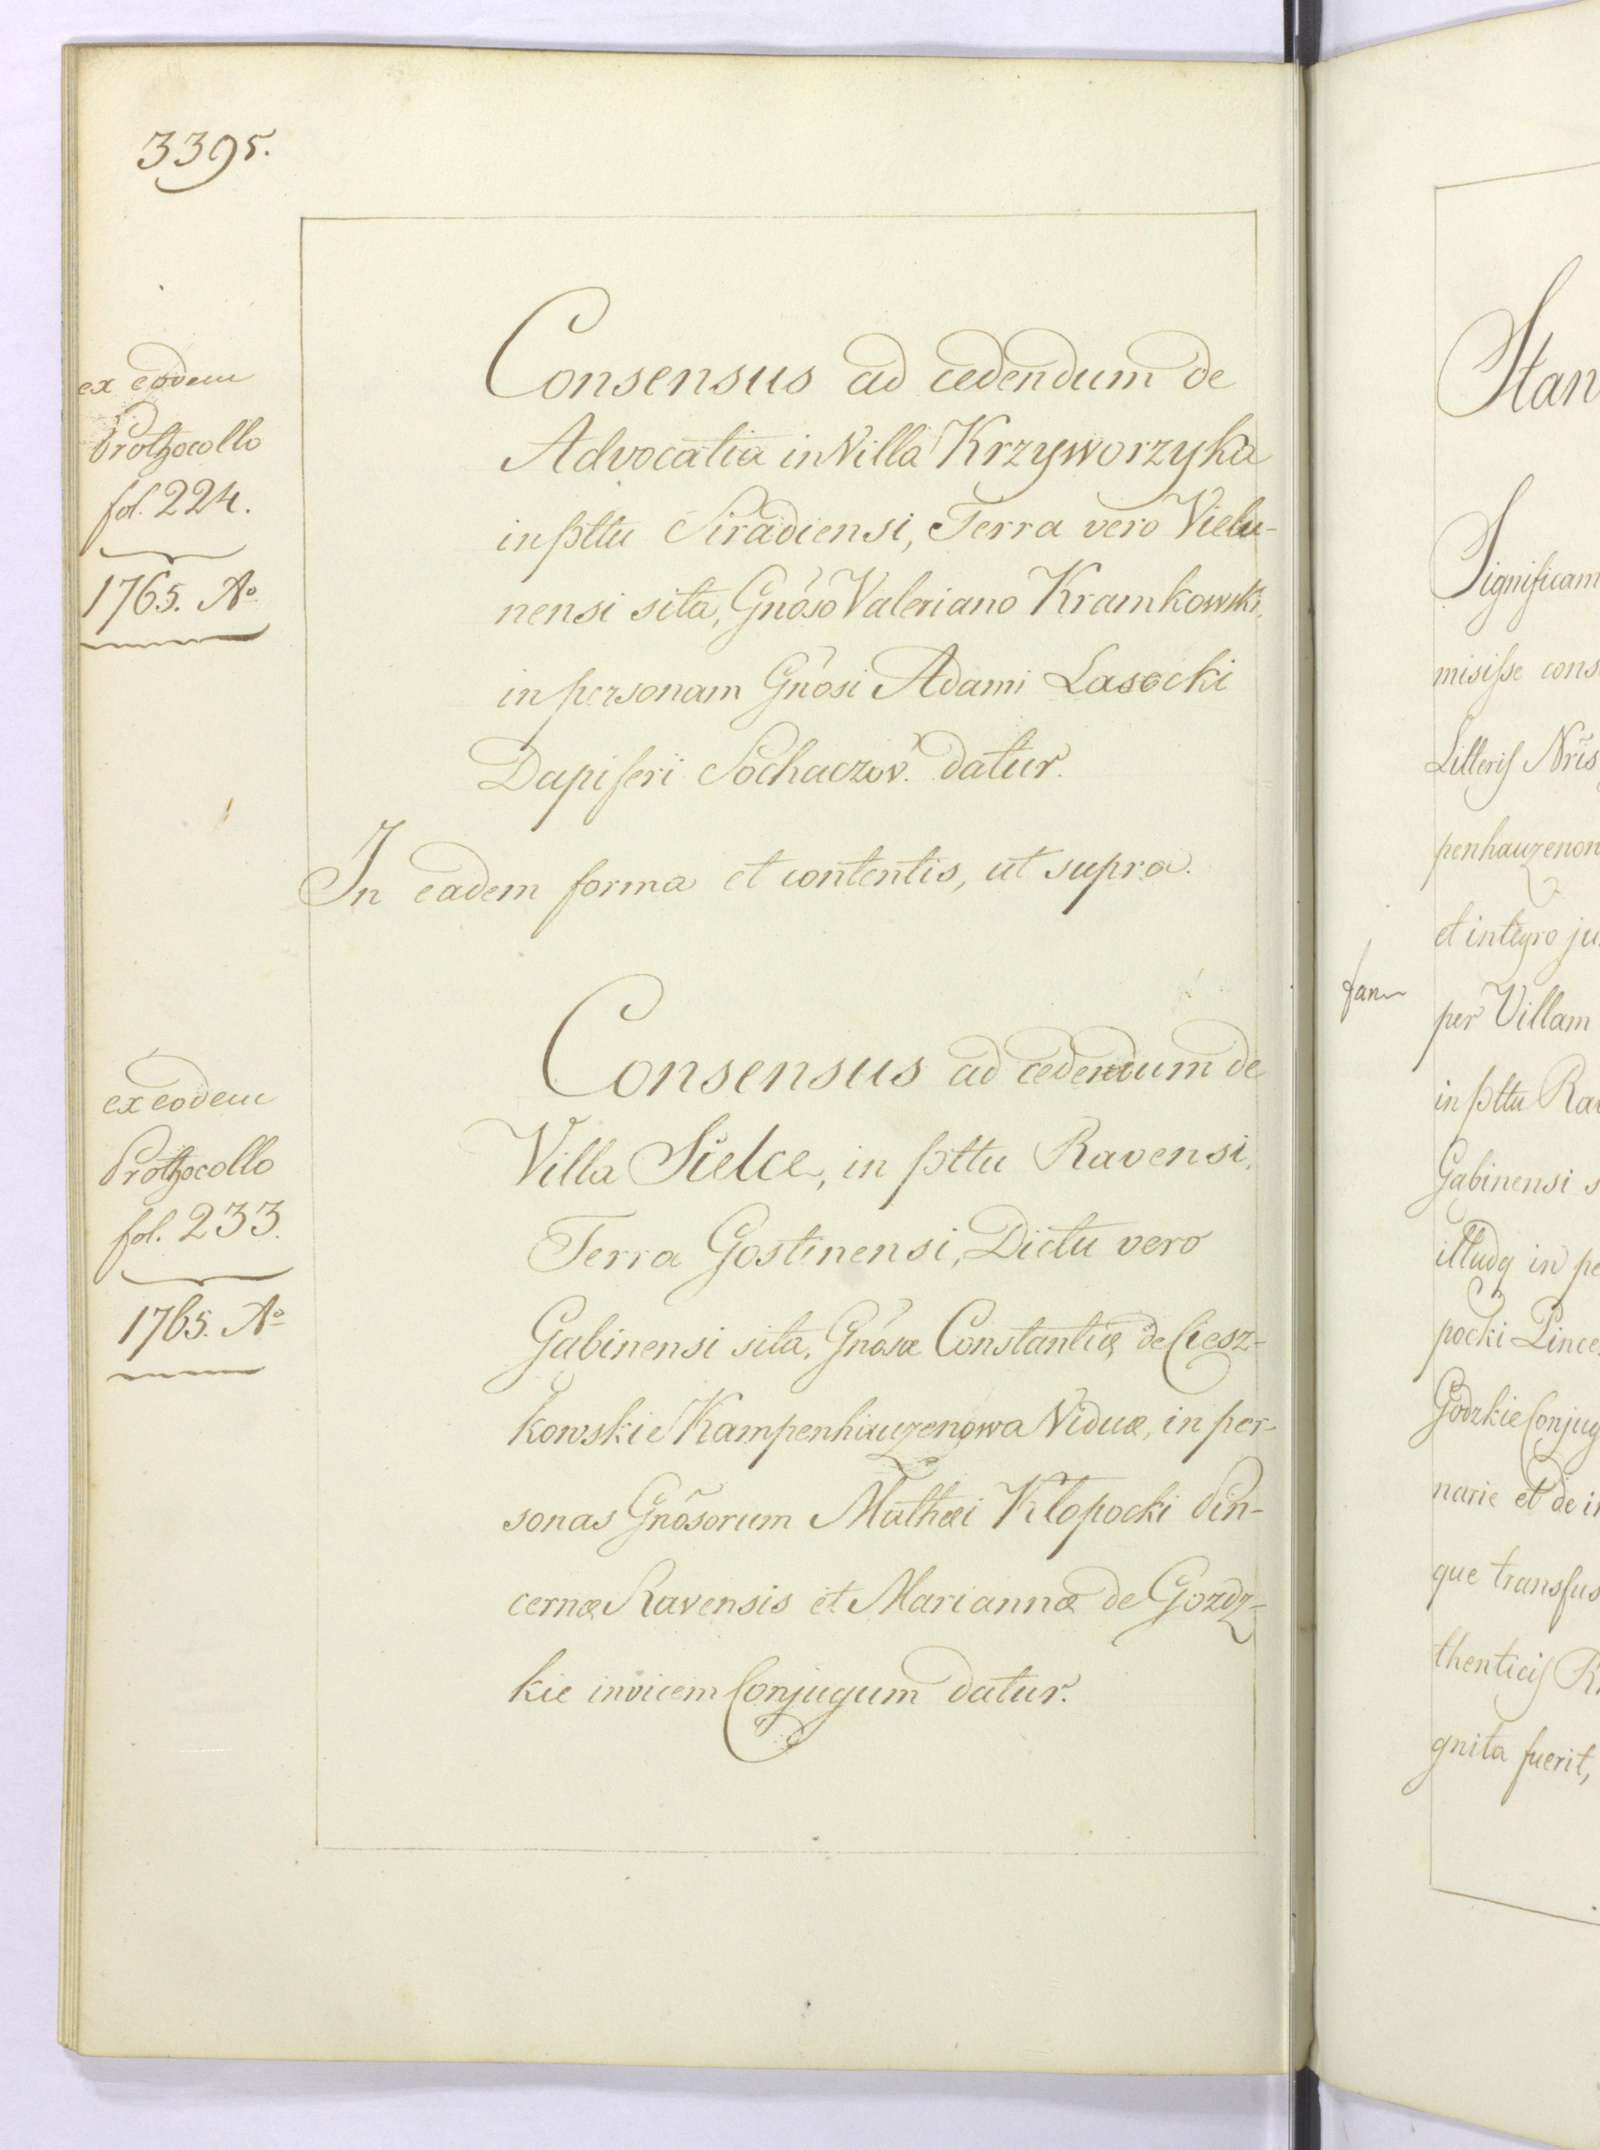 3395.
ex eodem
Prothocollo
fol. 224.
1765. Aº
Consensus ad cedendum de
Advocatia in Villa Krzyworzyka
in pttu Siradiensi, Terra vero Vielu-
nensi sita, Gnoso Valeriano Kramkowski,
in personam Gnosi Adami Lasocki
Dapiferi Sochaczov. datur.
In eadem forma et contentis, ut supra.
ex eodem
Prothocollo
fol. 233.
1765. Aº
Consensus ad cedendum de
Villa Sielce, in pttu Ravensi,
Terra Gostinensi, Dictu vero
Gabinensi sita, Gnosæ Constantiæ de Ciesz-
kowskie Kampenhauzenowa Viduæ, in per-
sonas Gnosorum Mathæi Klopocki Pin-
cernæ Ravensis et Mariannæ de Gozdz-
kie invicem Conjugum datur.
Stan
Significam
misisse cons
Litteris Nris
penhauzenon
et integro ju
fan
per Villam
in pttu Rav
Gabinensi s
illudq in pe
pocki Pince
Godzkie Conjug
narie et de i
que transfus
thenticis R
gnita fuerit,